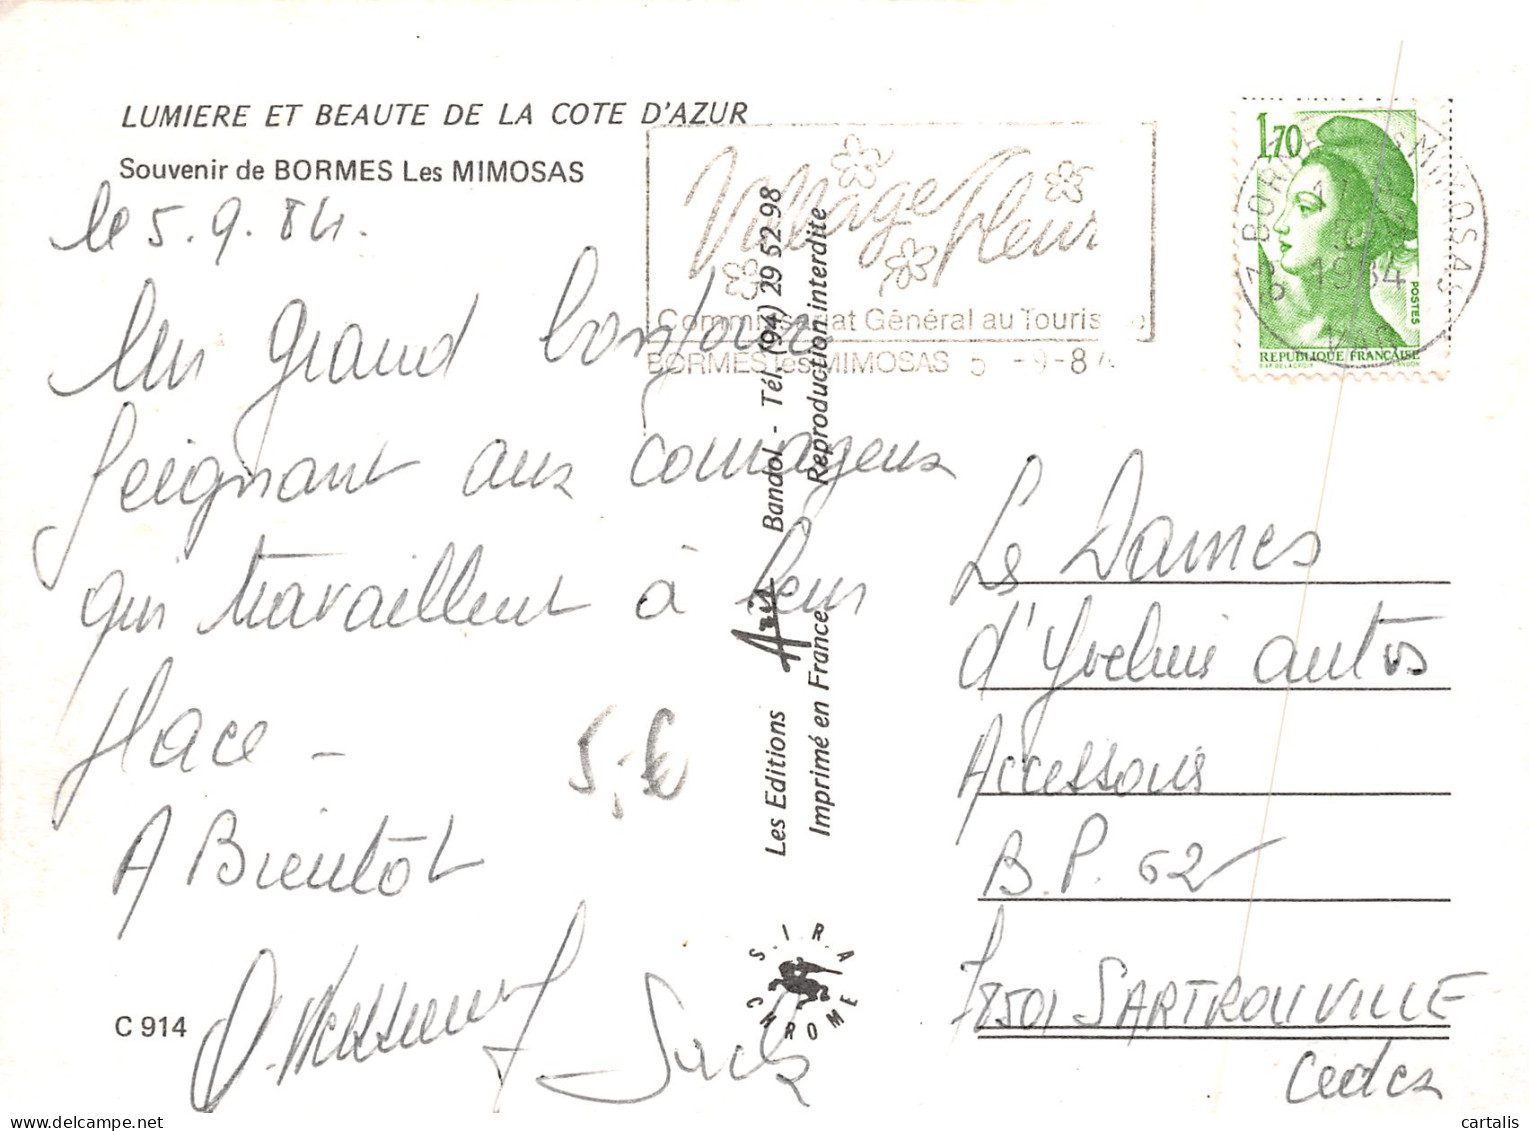 LUMIERE ET BEAUTE DE LA COTE D'AZUR
Souvenir de BORMES Les MIMOSAS
le 5.9.84.
Un grand bonjour
feignant aux courageux
qui travaillent à leur
place -
A Bientôt
Jack
5,-€
C 914
Village fleuri
Commissariat Général au Tourisme
BORMES les MIMOSAS 5 -9-84
1,70
POSTES
REPUBLIQUE FRANÇAISE
1984
VAR
Les Editions Aris Bandol - Tél. (94) 29 52 98
Imprimé en France Reproduction interdite
S.I.R.A
CHROME
Les Dames
d'Yvelines autos
Accessoires
B.P. 62
78501 SARTROUVILLE
Cedex
delcampe.net
cartalis